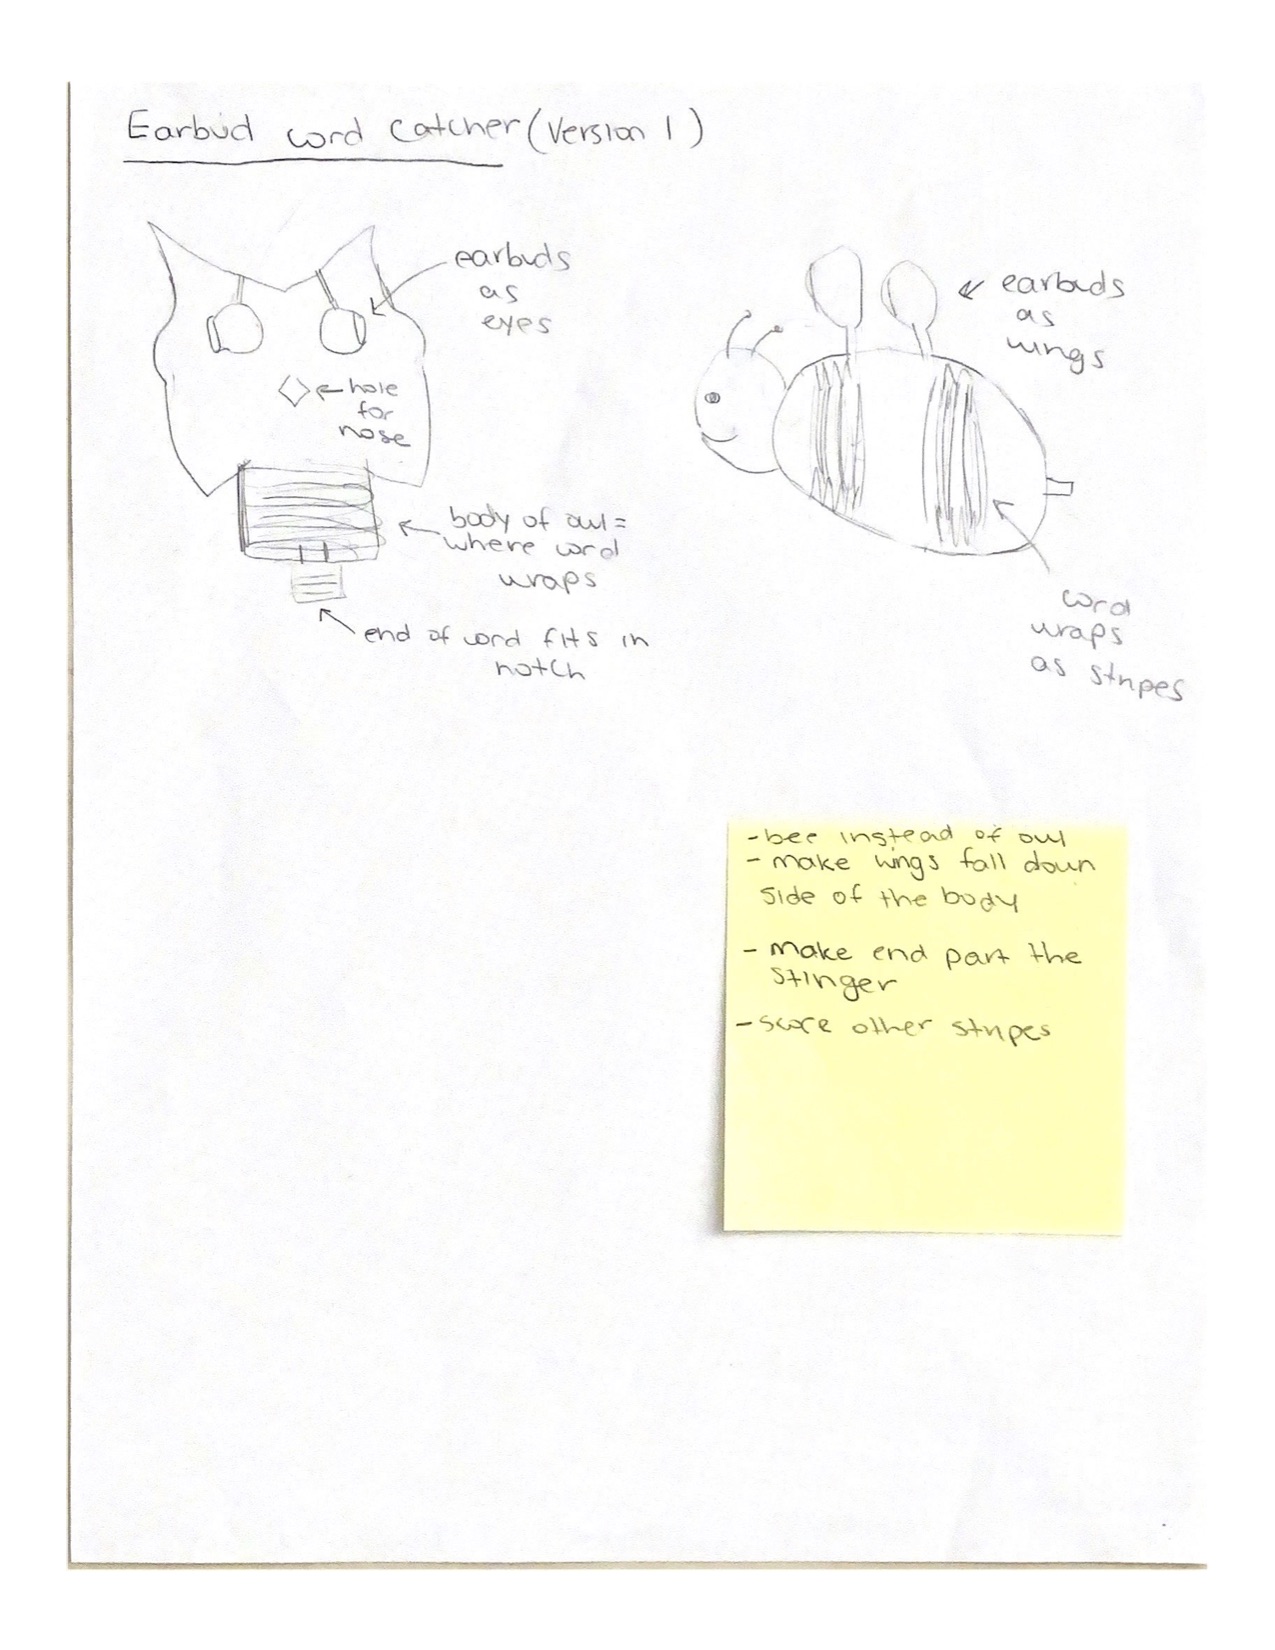 Earbud cord catcher (Version 1)
earbuds
as
eyes
hole
for
nose
body of owl =
where cord
wraps
end of cord fits in
notch
earbuds
as
wings
cord
wraps
as stripes
- bee instead of owl
- make wings fall down
side of the body
- make end part the
stinger
- score other stripes